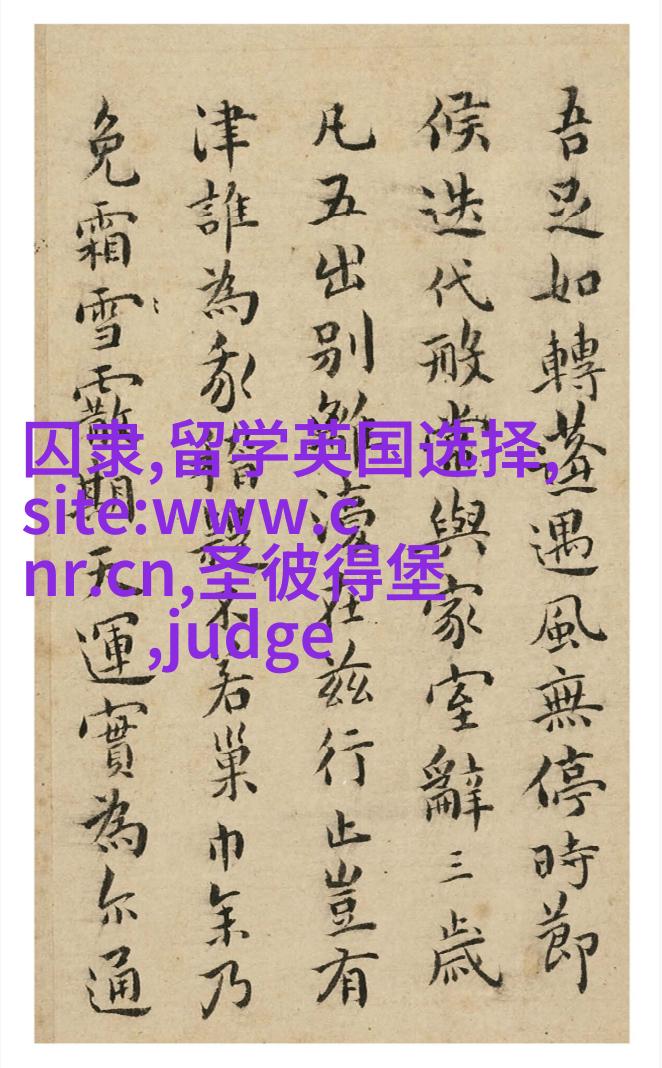 吾足如轉蓬遇風無停時節
候迭代般當與家室辭三歲
凡五出別離在茲行止豈有
津誰為我不若巢巾車乃
免霜雪霰期天運實為尔通
囚隶,留学英国选择,
site:www.c
nr.cn,圣彼得堡
,judge